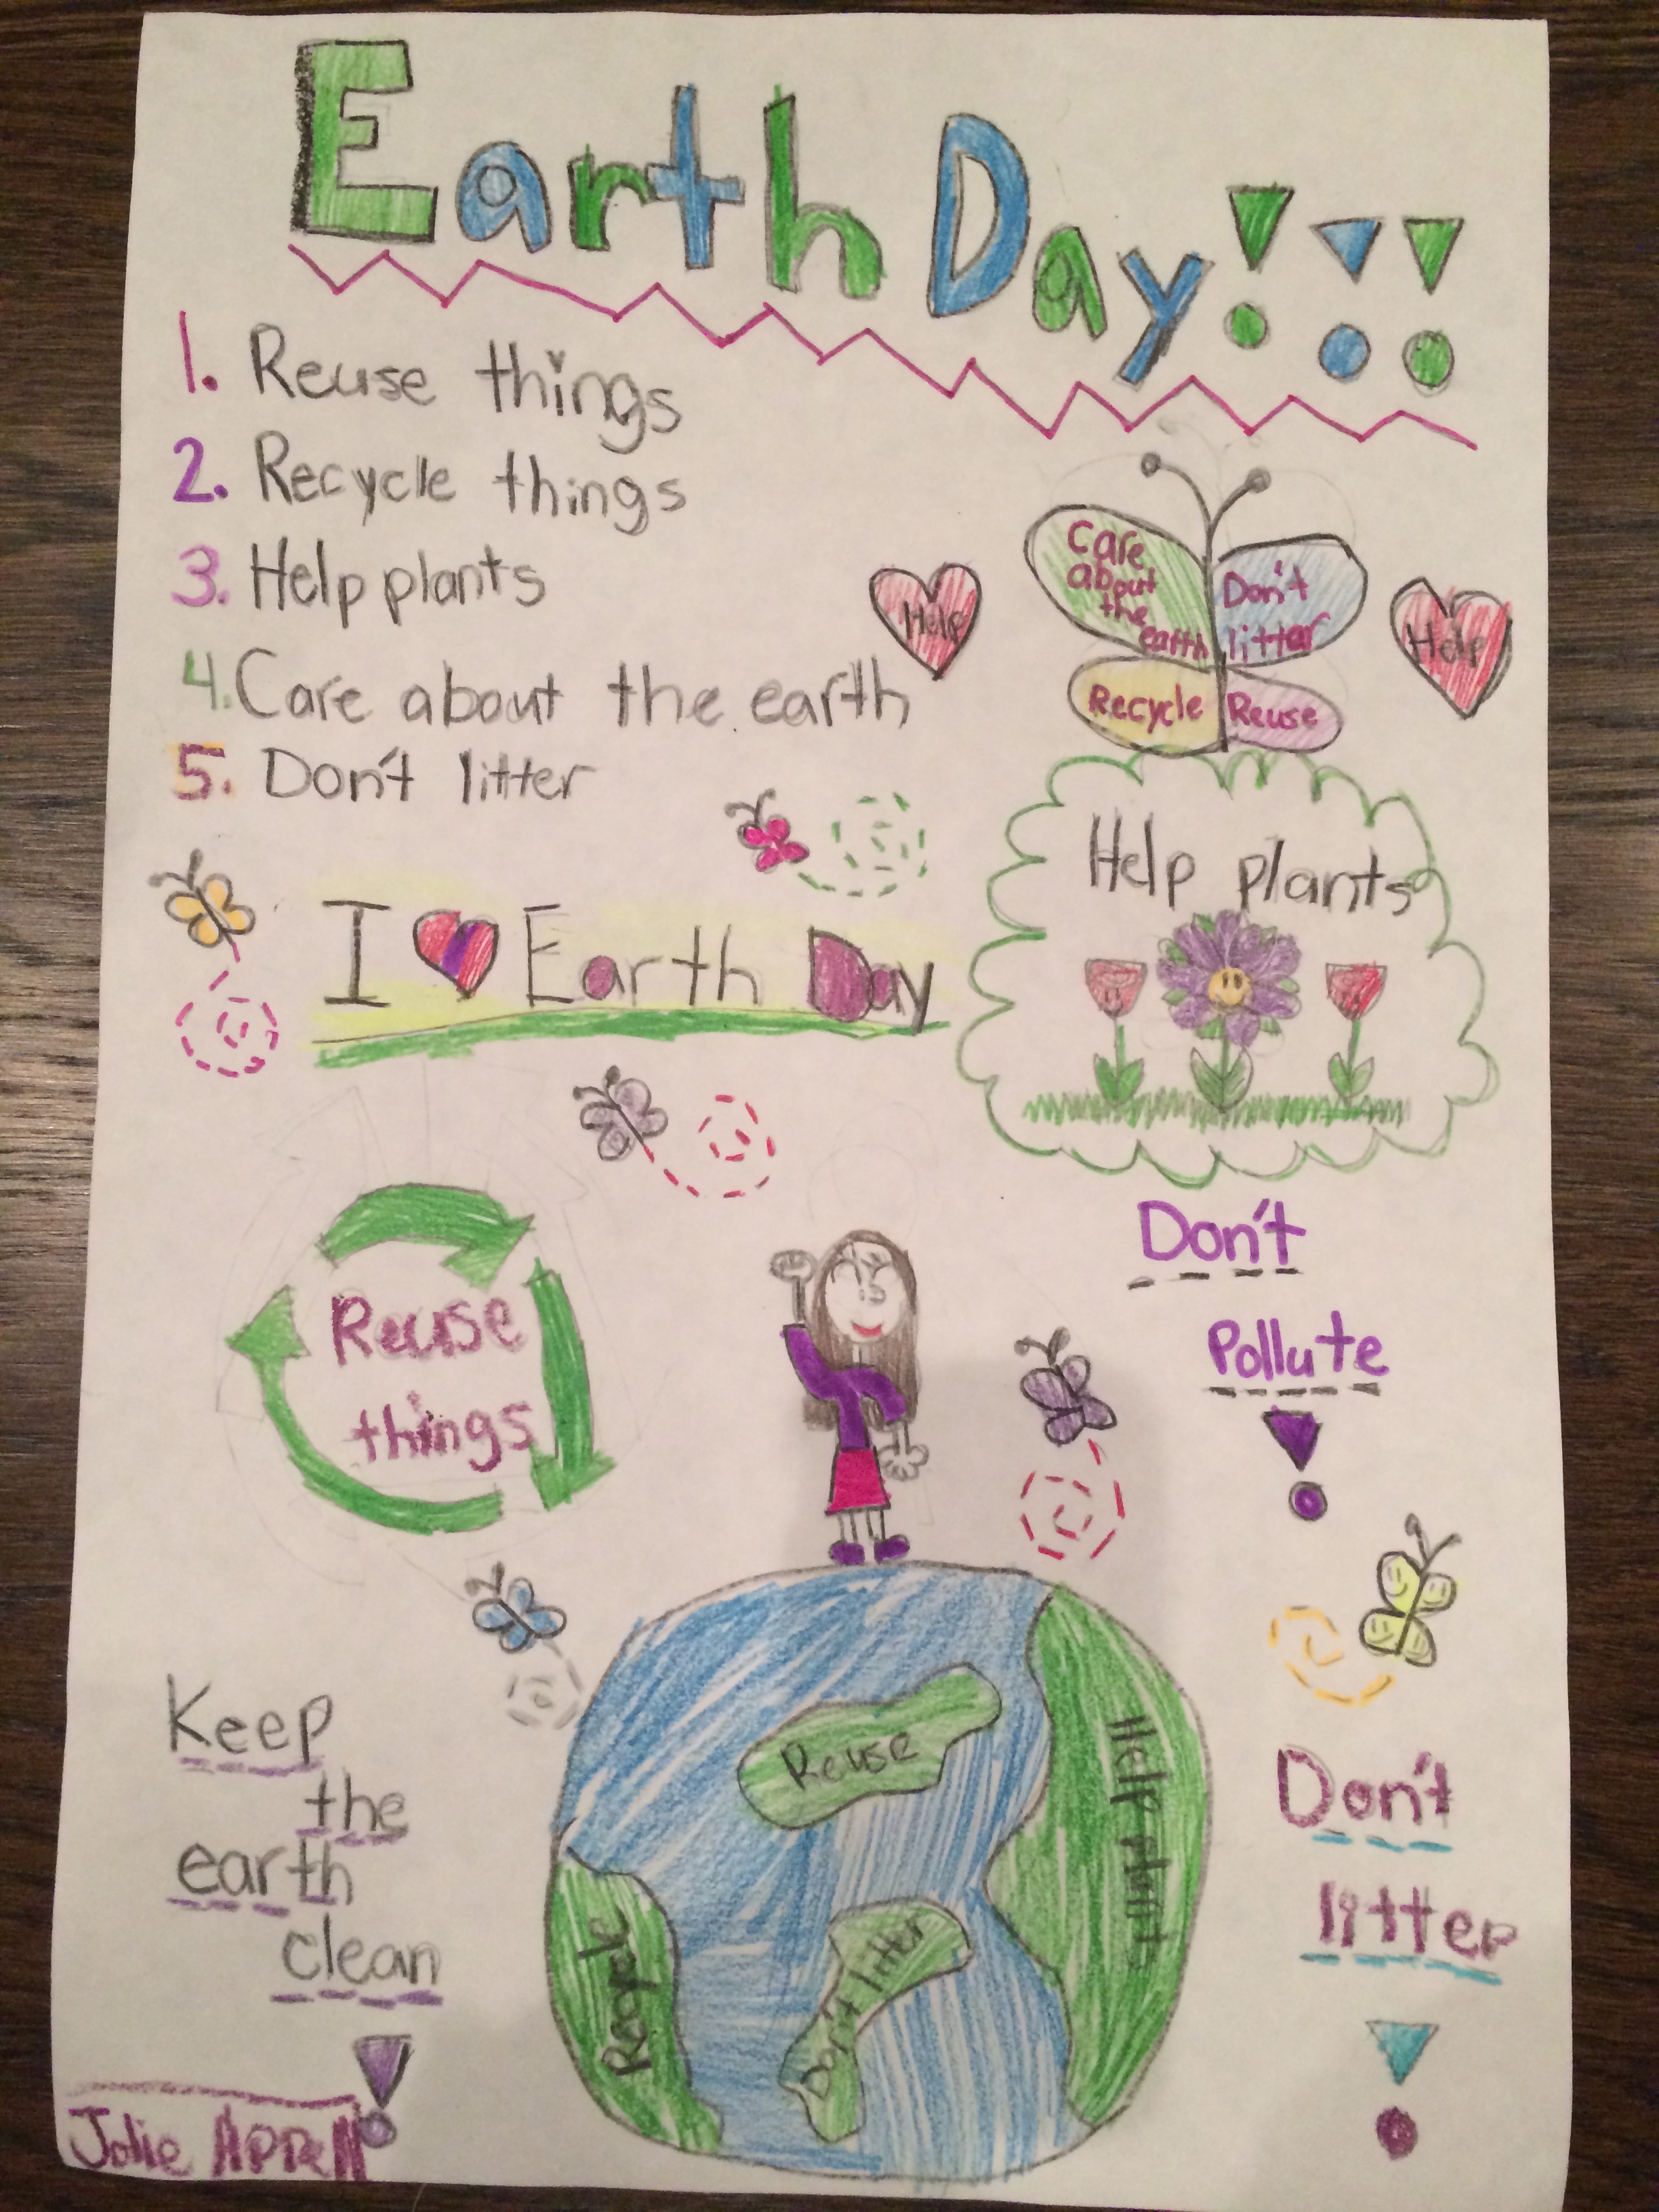 Earth Day!!!
1. Reuse things
2. Recycle things
3. Help plants
4. Care about the earth
5. Don't litter
Help
Care
about
the
earth
Don't
litter
Recycle
Reuse
Help
I ❤ Earth Day
Help plants
Reuse
things
Don't
Pollute
!
Keep
the
earth
clean
!
Reuse
Help plants
Recycle
Don't litter
Don't
litter
!
Jolie